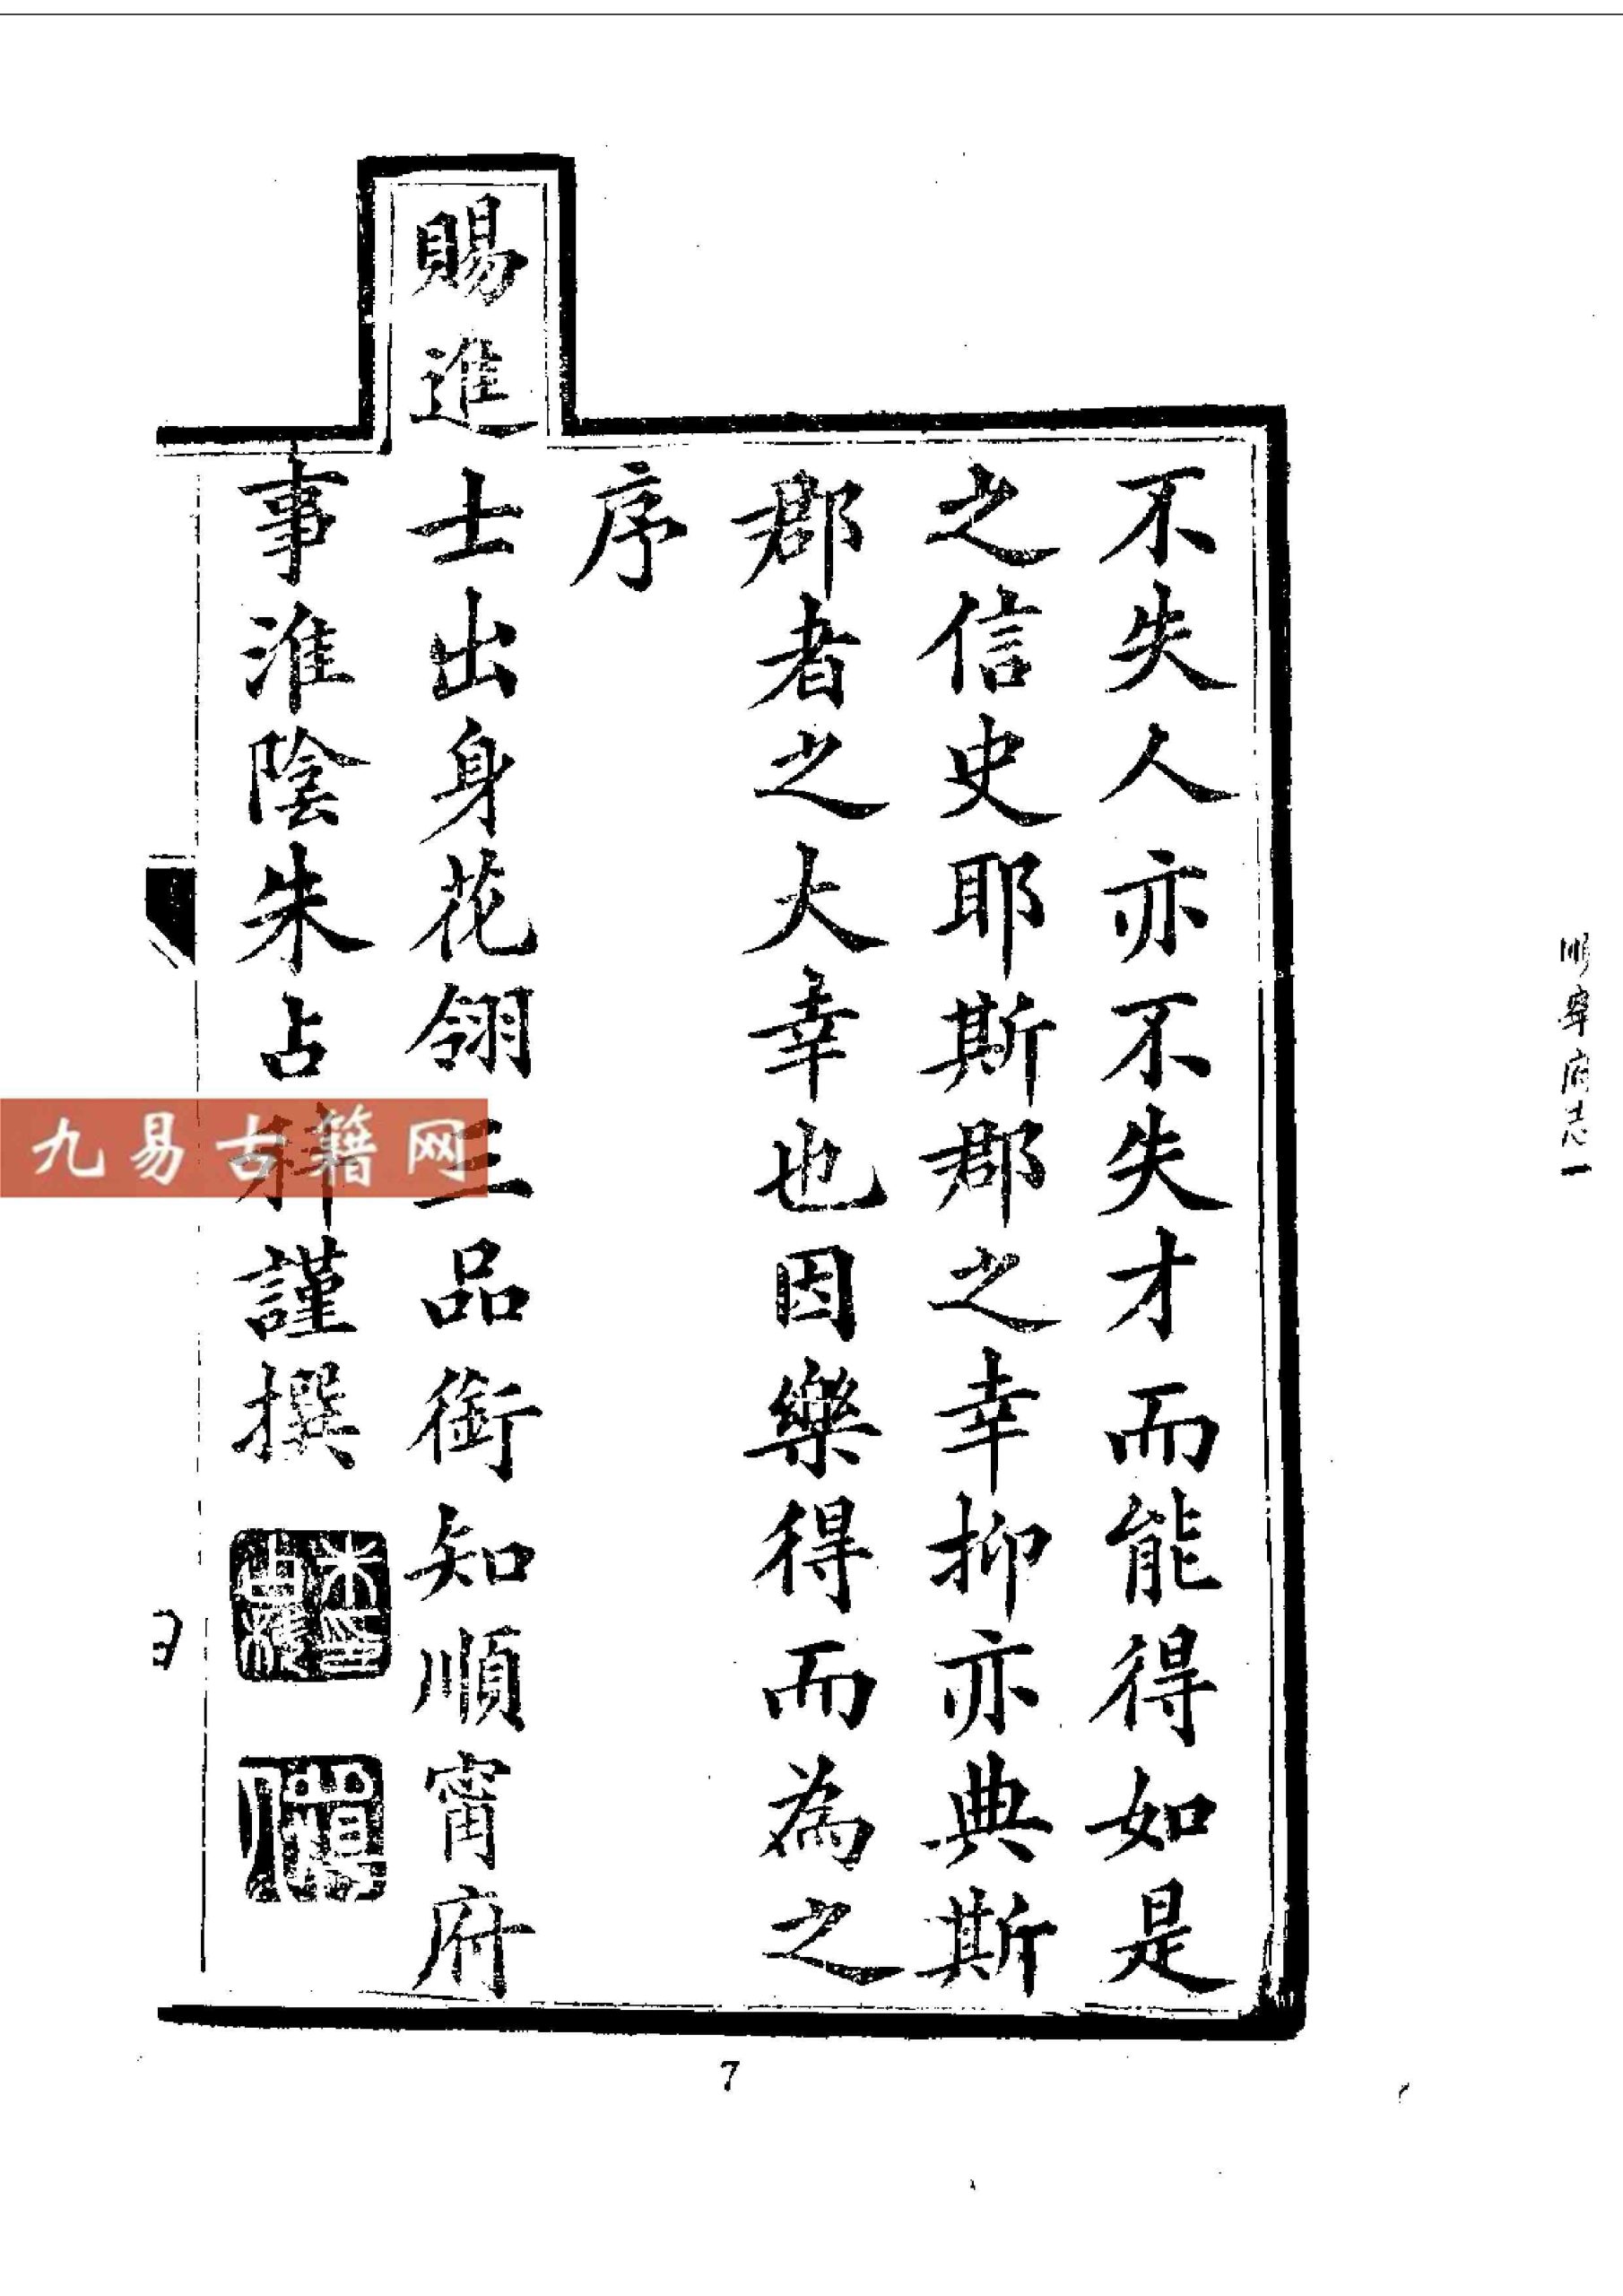 順寧府志一
不失人亦不失才而能得如是
之信史耶斯郡之幸抑亦典斯
郡者之大幸也因樂得而為之
序
賜進士出身花翎三品銜知順甯府
事淮陰朱占科謹撰
九易古籍网
7